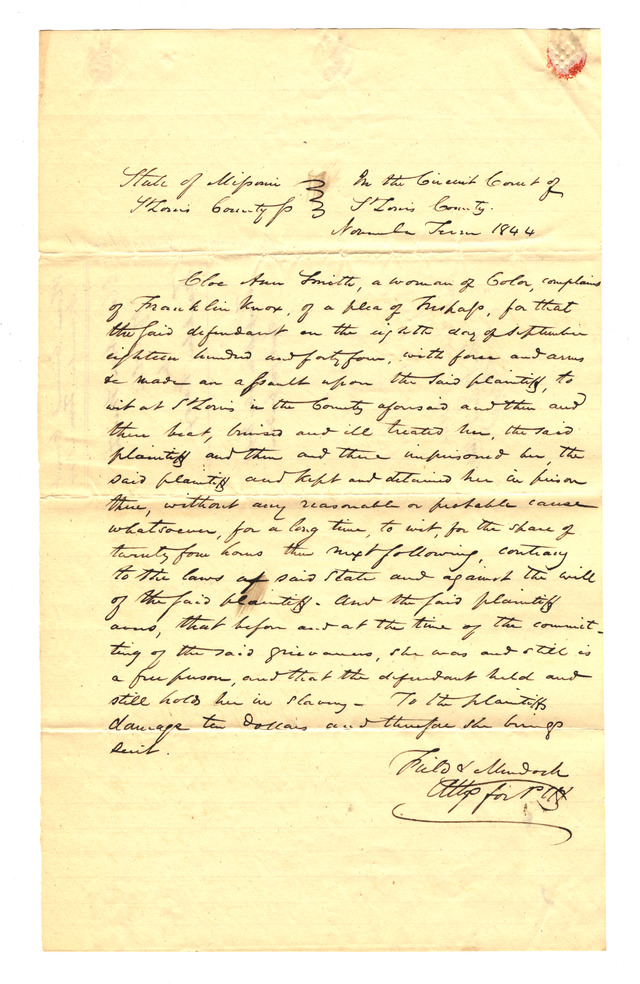 State of Missouri } In the Circuit Court of
St Louis County ss } St Louis County.
November Term 1844
Cloe Ann Smith, a woman of Color, complains
of Franklin Knox, of a plea of Trespass, for that
the said defendant on the eighth day of September
eighteen hundred and forty four, with force and arms
&c made an assault upon the said plaintiff, to
wit at St Louis in the County aforesaid and then and
there beat, bruised and ill treated her, the said
plaintiff and then and there imprisoned her, the
said plaintiff and kept and detained her in prison
there, without any reasonable or probable cause
whatsoever, for a long time, to wit, for the space of
twenty four hours then next following, contrary
to the laws of said State and against the will
of the said plaintiff. And the said plaintiff
avers, that before and at the time of the commit-
ting of the said grievances, she was and still is
a free person, and that the defendant held and
still holds her in slavery - To the plaintiffs
damage ten dollars and therefore she brings
suit.
Field & Murdoch
Attys for Pltff